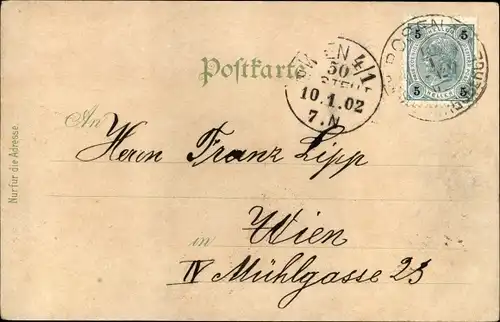 Postkarte
WIEN 4/1
50
10.1.02
7.N
5 5
HELLER
5 5
An
Herrn Franz Lipp
in Wien
IV Mühlgasse 23
Nur für die Adresse.